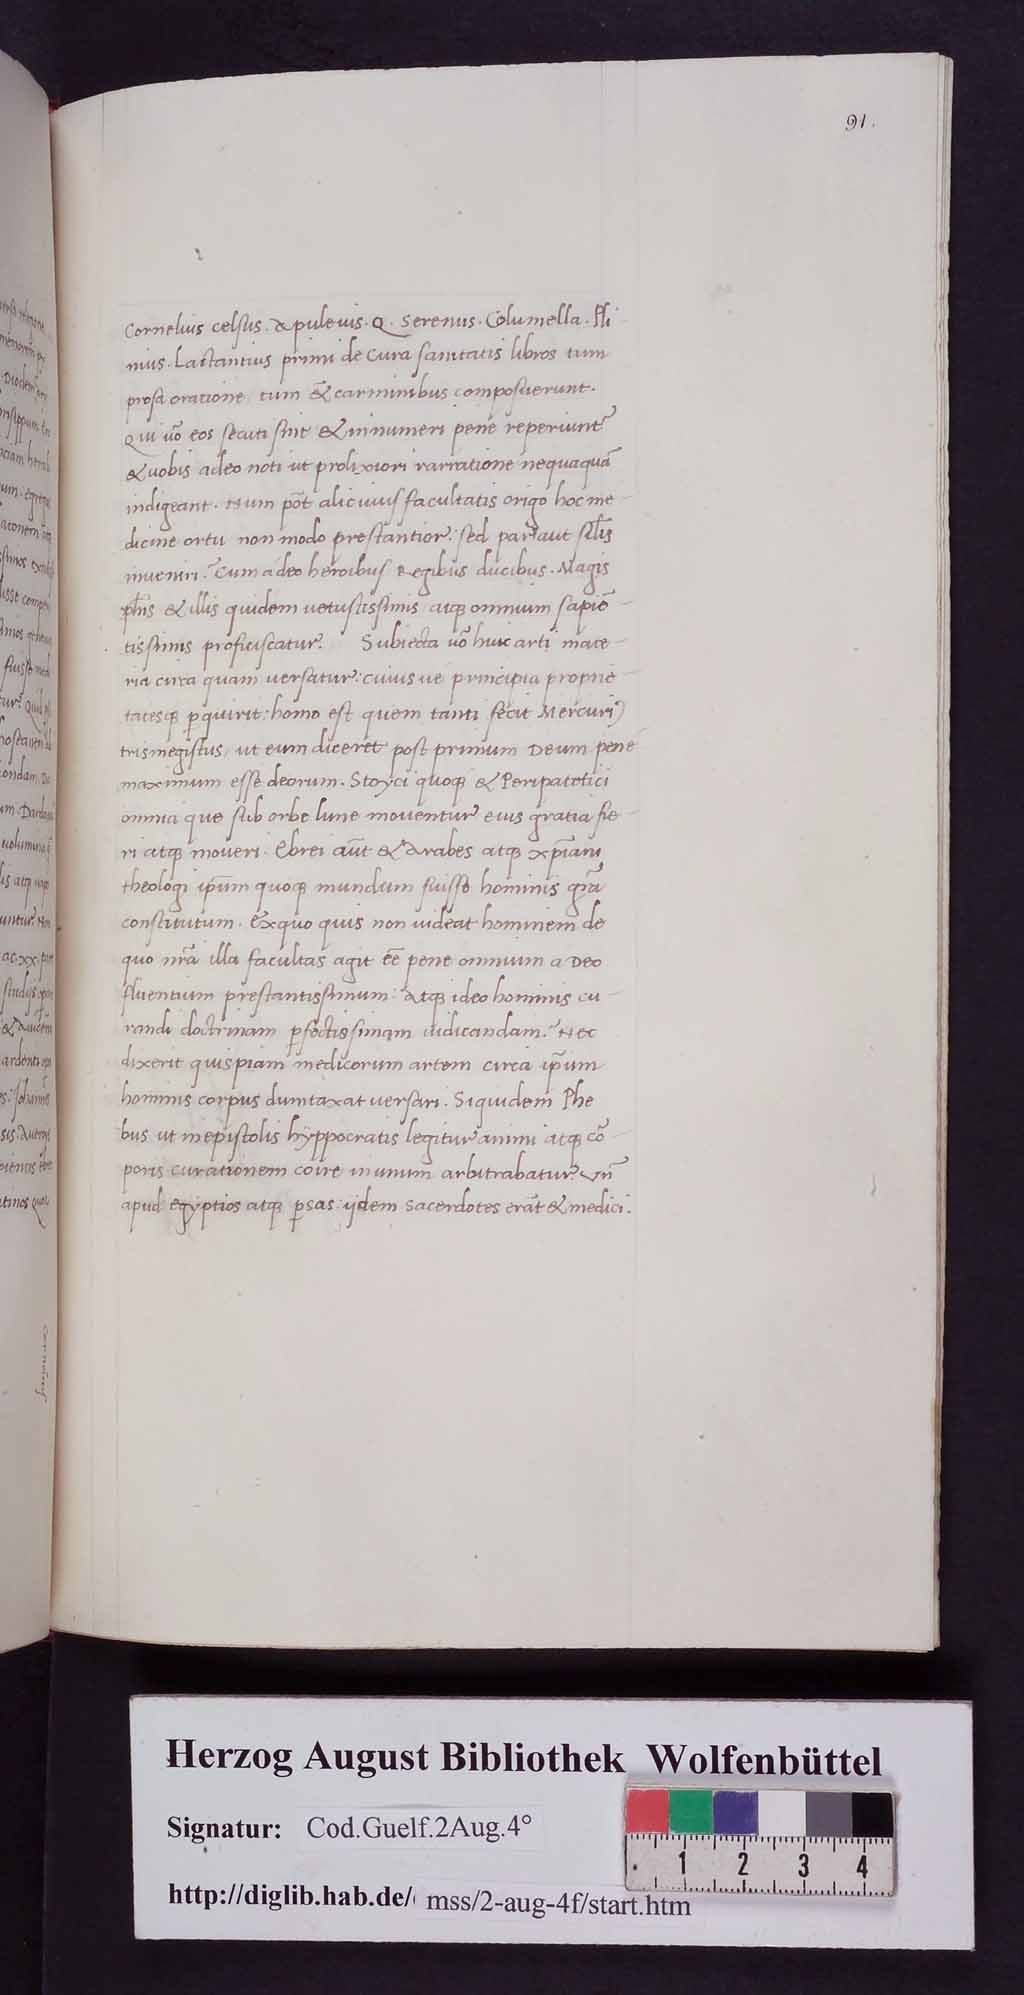 91.
Cornelius celsus. Apuleius. Q. Serenus. Columella. Pli
nius. Lactantius primi de cura sanitatis libros tum
prosa oratione, tum & carminibus composuerunt.
Qui uo᷃ eos secuti sint & innumeri pene reperiunt᷃
& uobis adeo noti ut prolixiori narratione nequaqua᷃
indigeant. Num po᷃t alicuius facultatis origo hoc me-
dicine ortu non modo prestantior᷃: sed par aut sil᷃is
inueniri? Cum adeo heroibus Regibus ducibus. Magis
ph᷃is & illis quidem uetustissimis atq; omnium sapie᷃-
tissimis proficiscatur᷃. Subiecta uo᷃ huic arti mate-
ria circa quam uersatur᷃: cuius ue principia proprie-
tatesq; p̱quirit: homo est quem tanti fecit Mercuri9
trismegistus, ut eum diceret post primum Deum pene
maximum esse deorum. Stoyci quoq; & Peripatetici
omnia que sub orbe lune mouentur᷃ eius gratia fie-
ri atq; moueri. Ebrei au᷃t & Arabes atq; xp᷃iani
theologi ip᷃um quoq; mundum fuisse hominis gr᷃a
constitutum. Ex quo quis non uideat hominem de
quo nr᷃a illa facultas agit ee᷃ pene omnium a Deo
fluentium prestantissimum: Atq; ideo hominis cu-
randi doctrinam p̱fectissimam iudicandam? Nec
dixerit quispiam medicorum artem circa ip᷃um
hominis corpus dumtaxat uersari. Siquidem Phe
bus ut in epistolis hyppocratis legitur᷃ animi atq; co᷃-
poris curationem coire in unum arbitrabatur᷃. Vn᷃
apud egyptios atq; p̱sas: ijdem sacerdotes era᷃t & medici.
Cornelius
Herzog August Bibliothek Wolfenbüttel
Signatur: Cod.Guelf.2Aug.4°
http://diglib.hab.de/ mss/2-aug-4f/start.htm
1 2 3 4